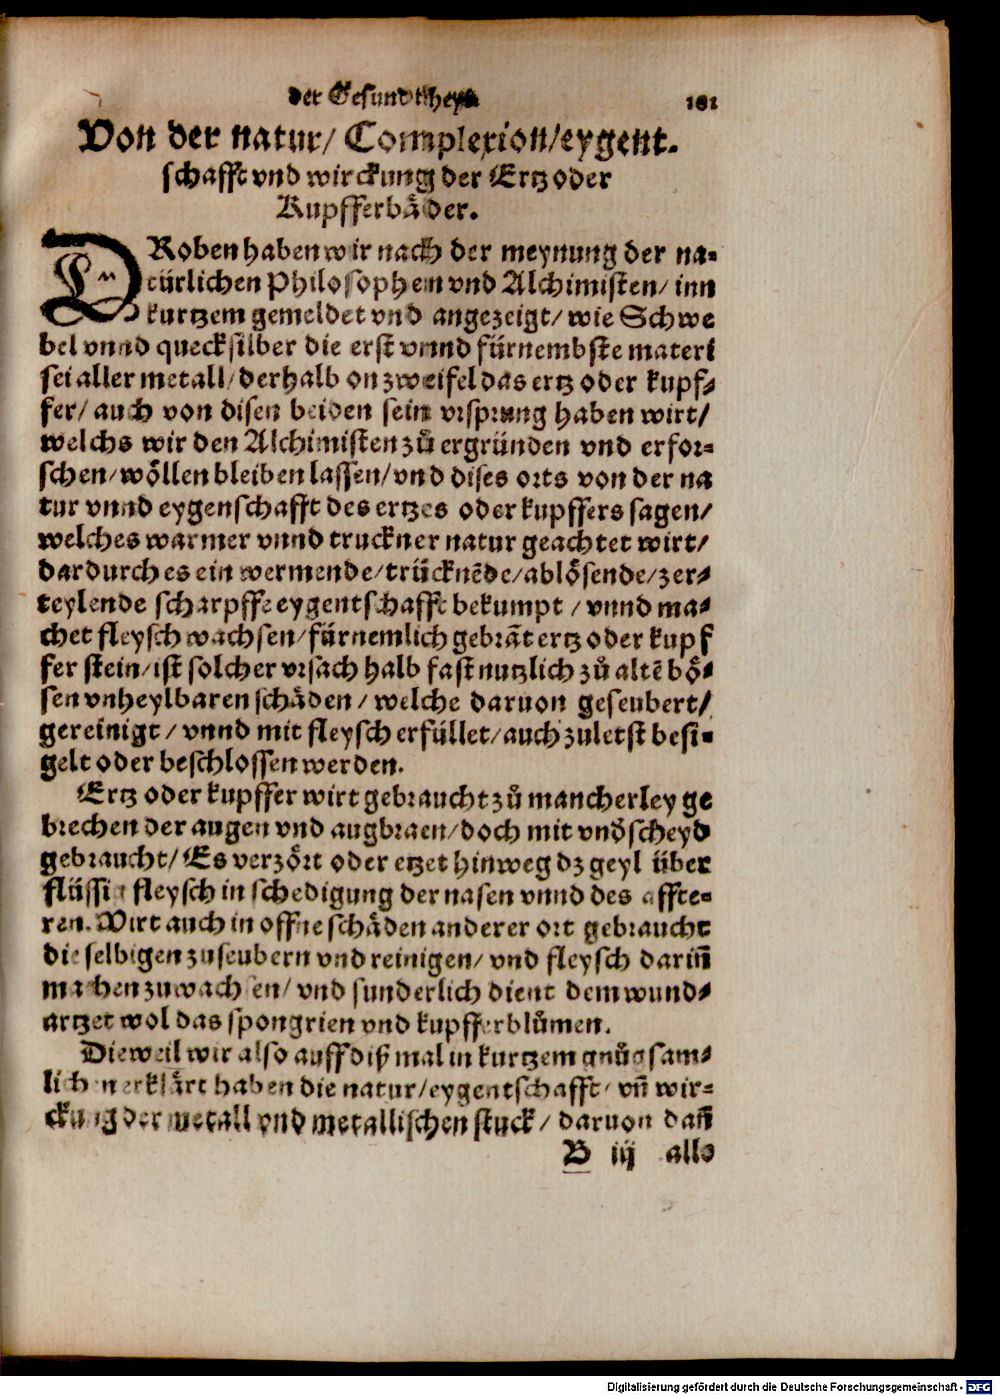 der Gesundtheyt 181
Von der natur/ Complexion/ eygent-
schafft vnd wirckung der Ertz oder
Kupfferbåder.
DRoben haben wir nach der meynung der na-
türlichen Philosophem vnd Alchimisten/ inn
kurtzem gemeldet vnd angezeigt/ wie Schwe
bel vnnd quecksilber die erst vnnd fürnembste materi
sei aller metall/ derhalb on zweifel das ertz oder kupf-
fer/ auch von disen beiden sein vrsprung haben wirt/
welchs wir den Alchimisten zů ergründen vnd erfor-
schen/ wöllen bleiben lassen/ vnd dises orts von der na
tur vnnd eygenschafft des ertzes oder kupffers sagen/
welches warmer vnnd truckner natur geachtet wirt/
dardurch es ein wermende/ trücknēde/ ablösende/ zer-
teylende scharpffe eygentschafft bekumpt / vnnd ma-
chet fleysch wachsen/ fürnemlich gebrāt ertz oder kupf
fer stein/ ist solcher vrsach halb fast nutzlich zů altē bö-
sen vnheylbaren schäden / welche daruon geseubert/
gereinigt / vnnd mit fleysch erfüllet/ auch zuletst besi-
gelt oder beschlossen werden.
Ertz oder kupffer wirt gebraucht zů mancherley ge
brechen der augen vnd augbraen/ doch mit vnd̕scheyd
gebraucht/ Es verzört oder etzet hinweg dz geyl über
flüssig fleysch in schedigung der nasen vnnd des affte-
ren. Wirt auch in offne schäden anderer ort gebraucht
die selbigen zu seubern vnd reinigen/ vnd fleysch dariñ
machen zu wachsen/ vnd sunderlich dient dem wund-
artzet wol das spongrien vnd kupfferblůmen.
Dieweil wir also auff diß mal in kurtzem gnůgsam-
lichen erklärt haben die natur/ eygentschafft/ vñ wir-
ckung der metall vnd metallischen stuck / daruon dañ
B iij alle
Digitalisierung gefördert durch die Deutsche Forschungsgemeinschaft - DFG